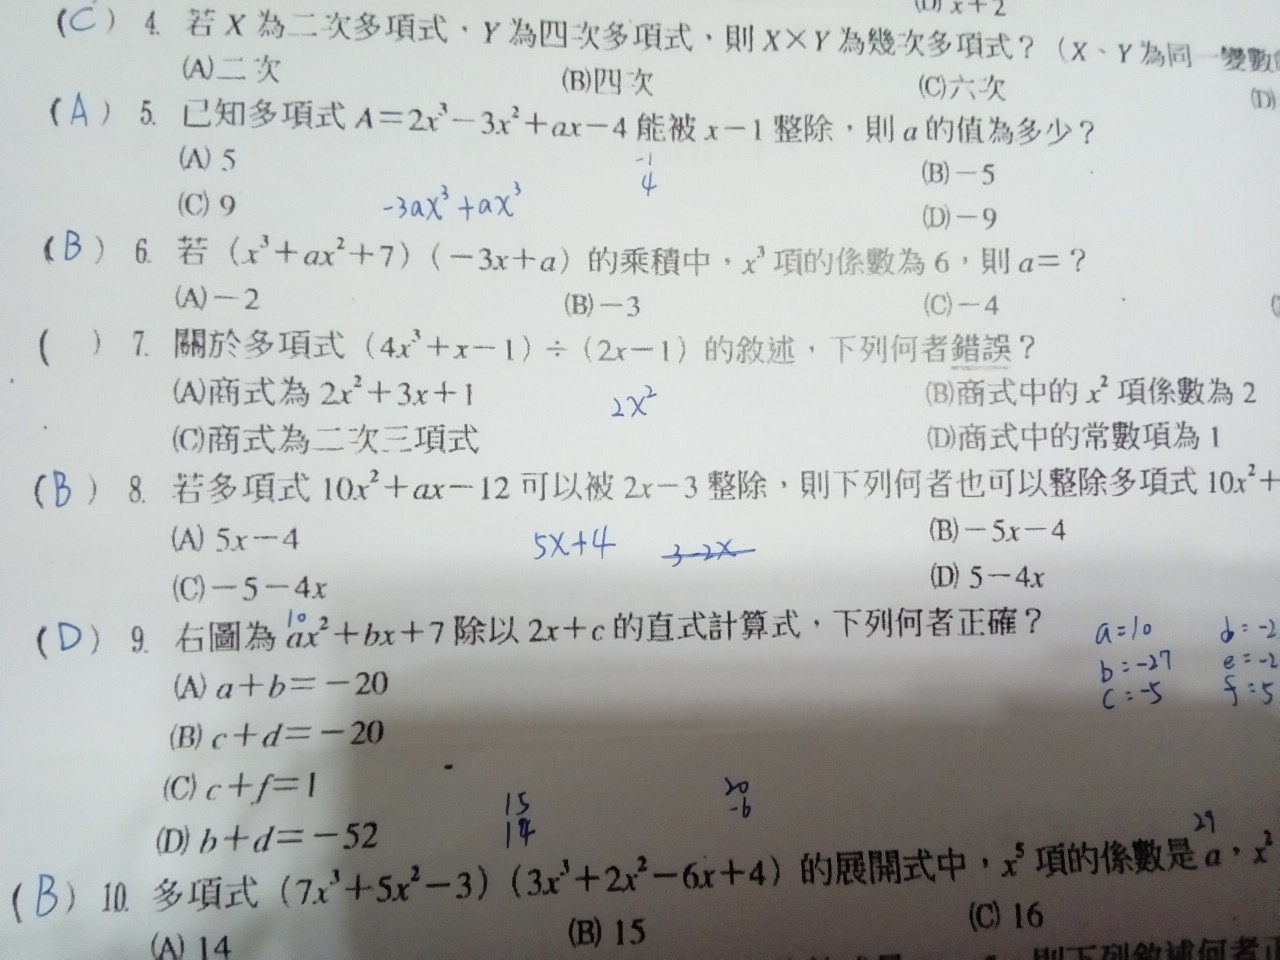 (D) x+2
(C) 4. 若 X 為二次多項式，Y 為四次多項式，則 X×Y 為幾次多項式？（X、Y 為同一變數
(A)二次 (B)四次 (C)六次 (D)
(A) 5. 已知多項式 A=2x³-3x²+ax-4 能被 x-1 整除，則 a 的值為多少？
(A) 5 (B)-5
-1
4
(C) 9 (D)-9
-3ax³+ax³
(B) 6. 若（x³+ax²+7）（-3x+a）的乘積中，x³ 項的係數為 6，則 a=？
(A)-2 (B)-3 (C)-4
( ) 7. 關於多項式（4x³+x-1）÷（2x-1）的敘述，下列何者錯誤？
(A)商式為 2x²+3x+1 (B)商式中的 x² 項係數為 2
2x²
(C)商式為二次三項式 (D)商式中的常數項為 1
(B) 8. 若多項式 10x²+ax-12 可以被 2x-3 整除，則下列何者也可以整除多項式 10x²+
(A) 5x-4 (B)-5x-4
5x+4 3-2x
(C)-5-4x (D) 5-4x
10
(D) 9. 右圖為 ax²+bx+7 除以 2x+c 的直式計算式，下列何者正確？
a=10 d=-2
b=-27 e=-2
c=-5 f=5
(A) a+b=-20
(B) c+d=-20
(C) c+f=1
15 20
14 -6
(D) b+d=-52
29
(B) 10. 多項式（7x³+5x²-3）（3x³+2x²-6x+4）的展開式中，x⁵ 項的係數是 a，x²
(A) 14 (B) 15 (C) 16
則下列敘述何者正